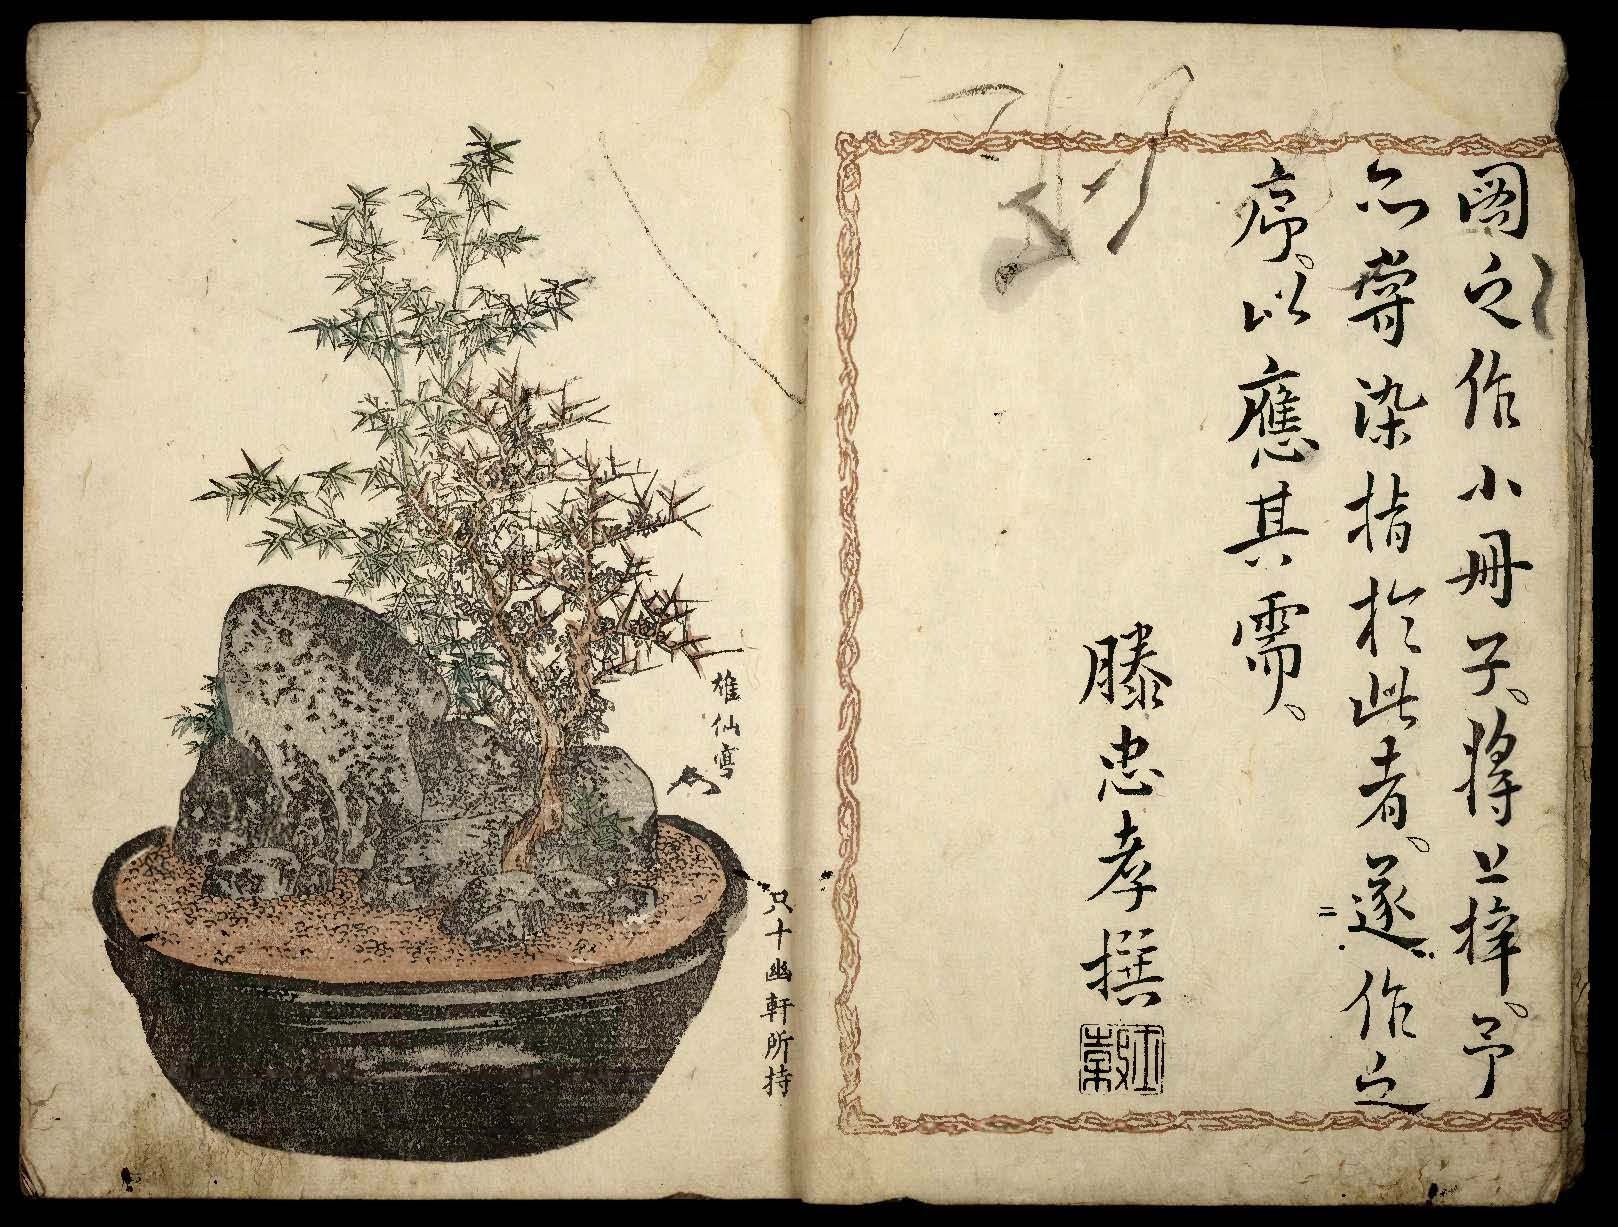 圖之作小冊子。將上梓。予
亦嘗染指於此者。遂作之
序。以應其需。
滕忠孝撰
雄仙寫
只十幽軒所持